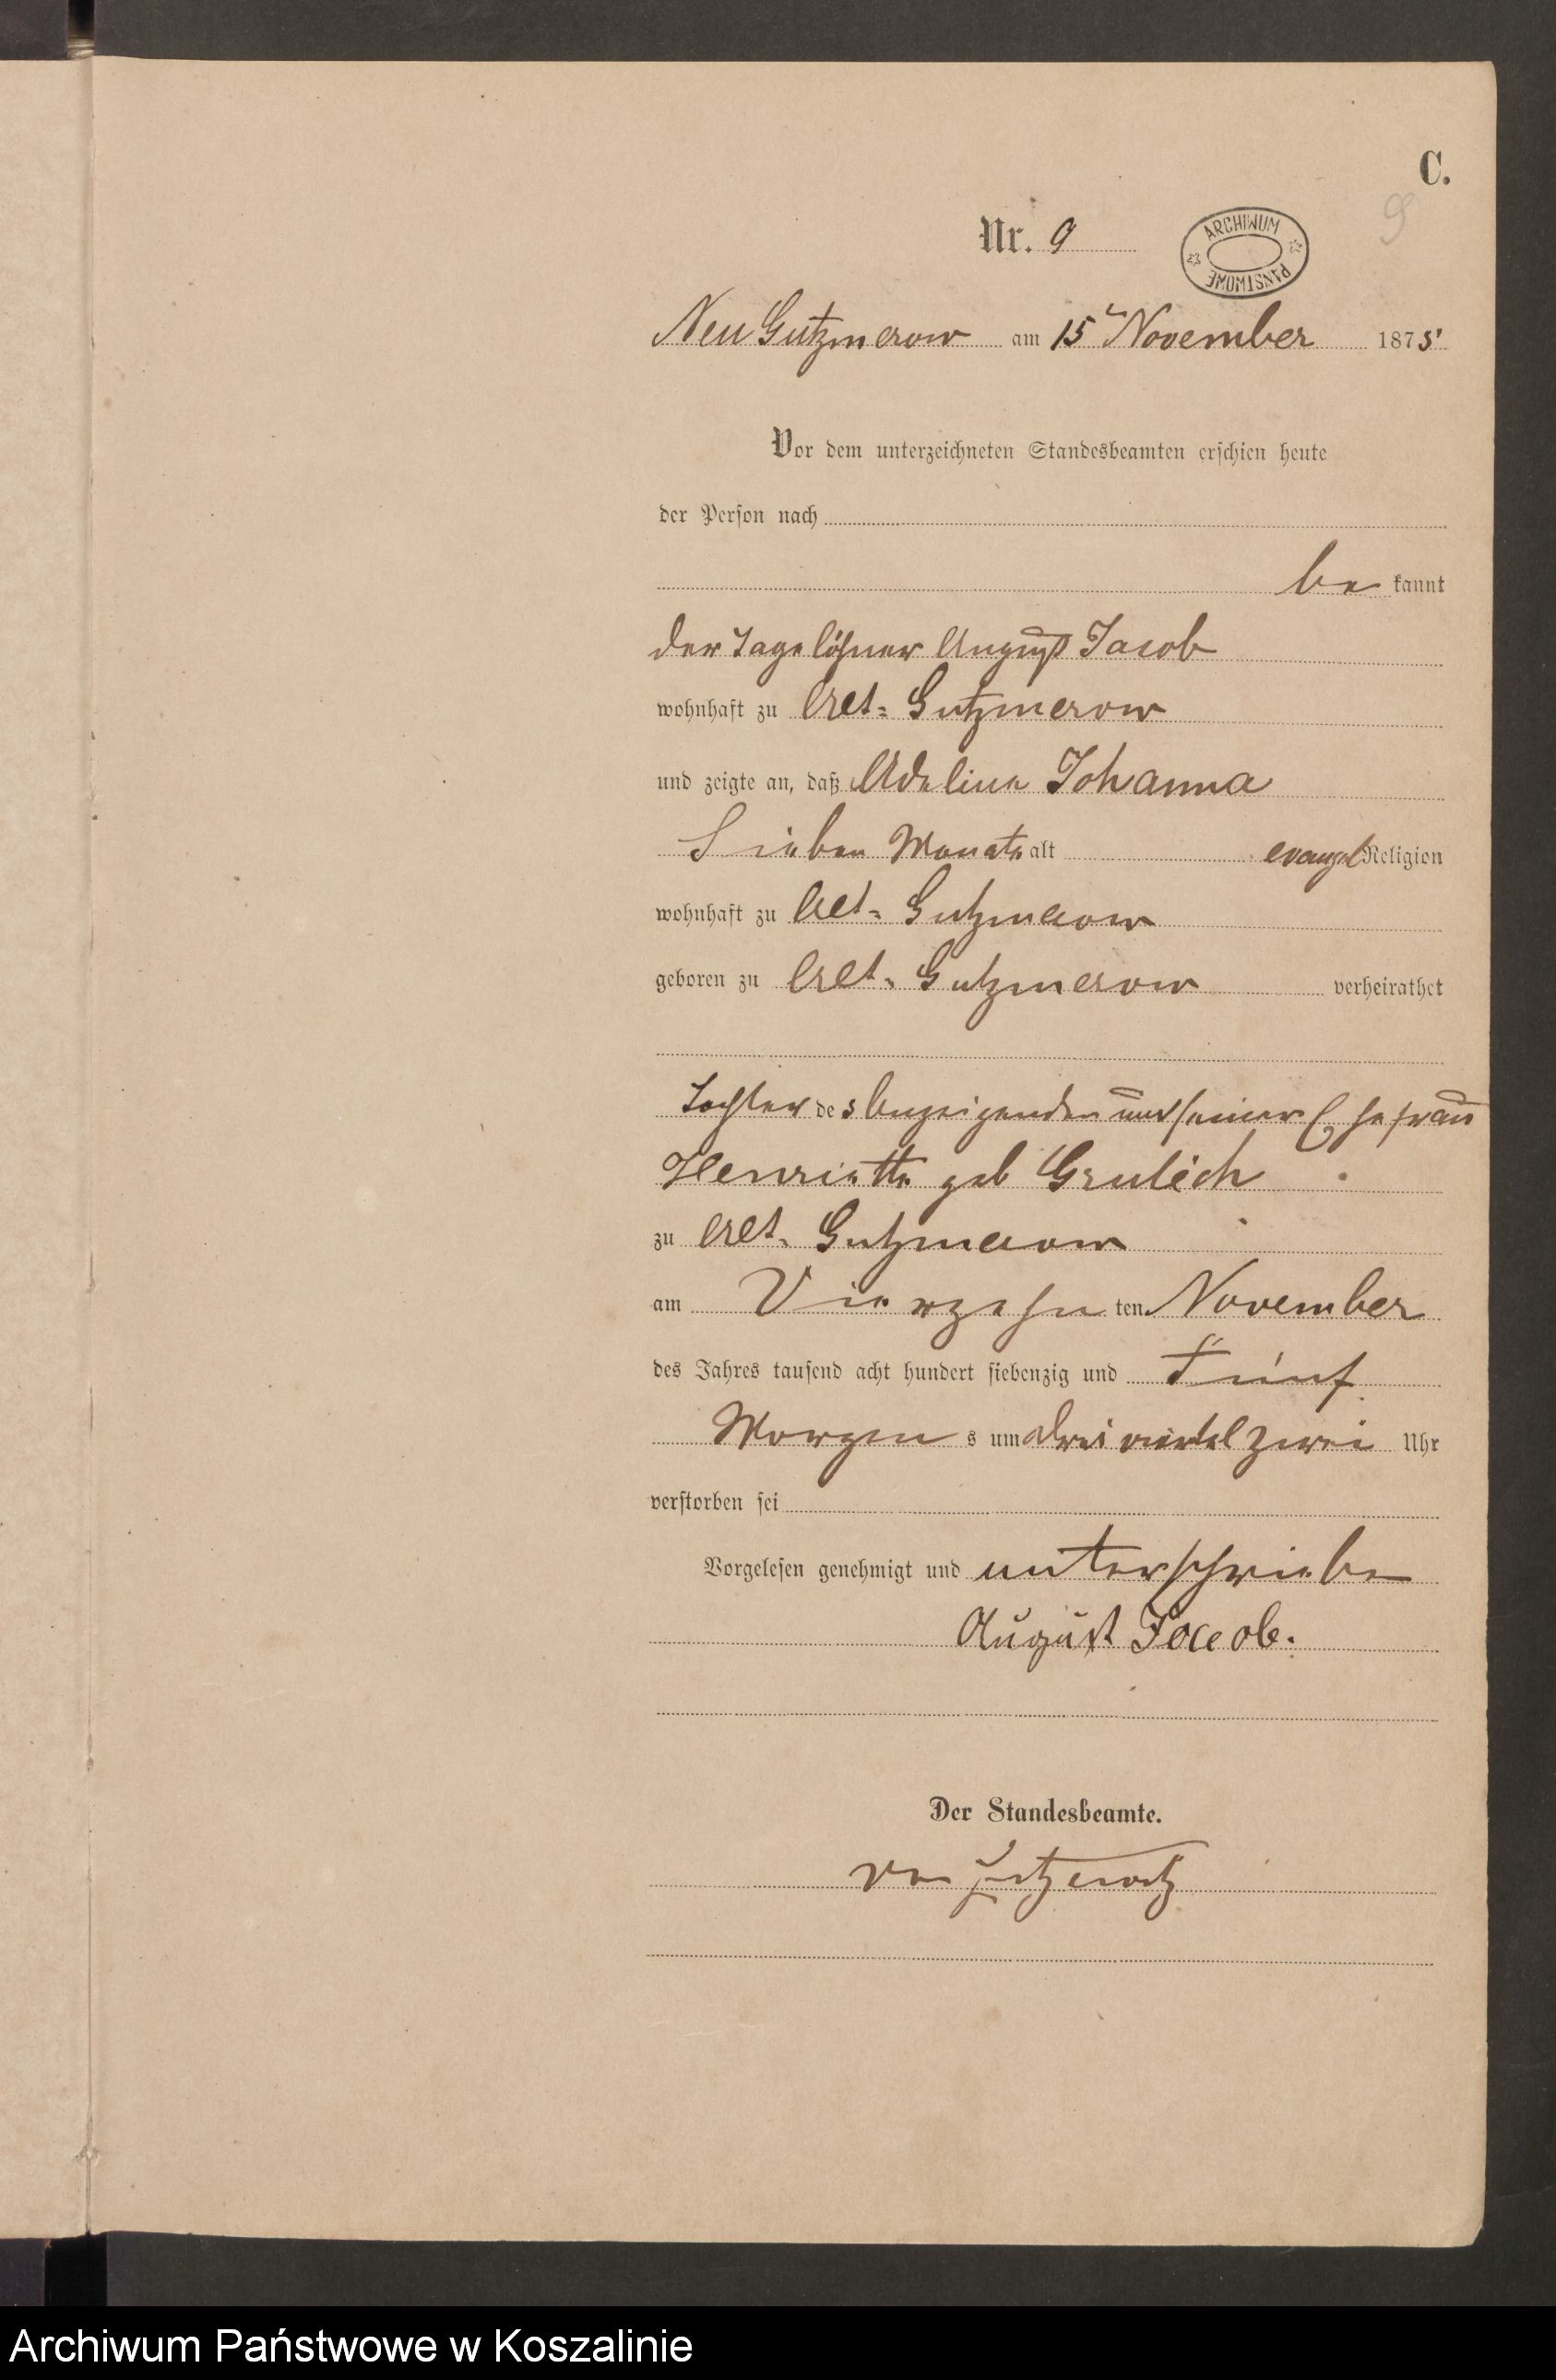 C.
Nr. 9
ARCHIWUM PAŃSTWOWE
9
Neu Gutzmerow am 15 November 1875
Vor dem unterzeichneten Standesbeamten erschien heute
der Person nach
be kannt
der Tagelöhner August Jacob
wohnhaft zu Alt- Gutzmerow
und zeigte an, daß Adeline Johanna
Sieben Monate alt evangel Religion
wohnhaft zu Alt- Gutzmerow
geboren zu Alt- Gutzmerow verheirathet
Tochter des Anzeigenden und seiner Ehefrau
Henriette geb Grulich
zu Alt- Gutzmerow
am Vierzehn ten November
des Jahres tausend acht hundert siebenzig und Fünf
Morgen s um drei viertel zwei Uhr
verstorben sei
Vorgelesen genehmigt und unterschrieben
August Jacob.
Der Standesbeamte.
von
Archiwum Państwowe w Koszalinie